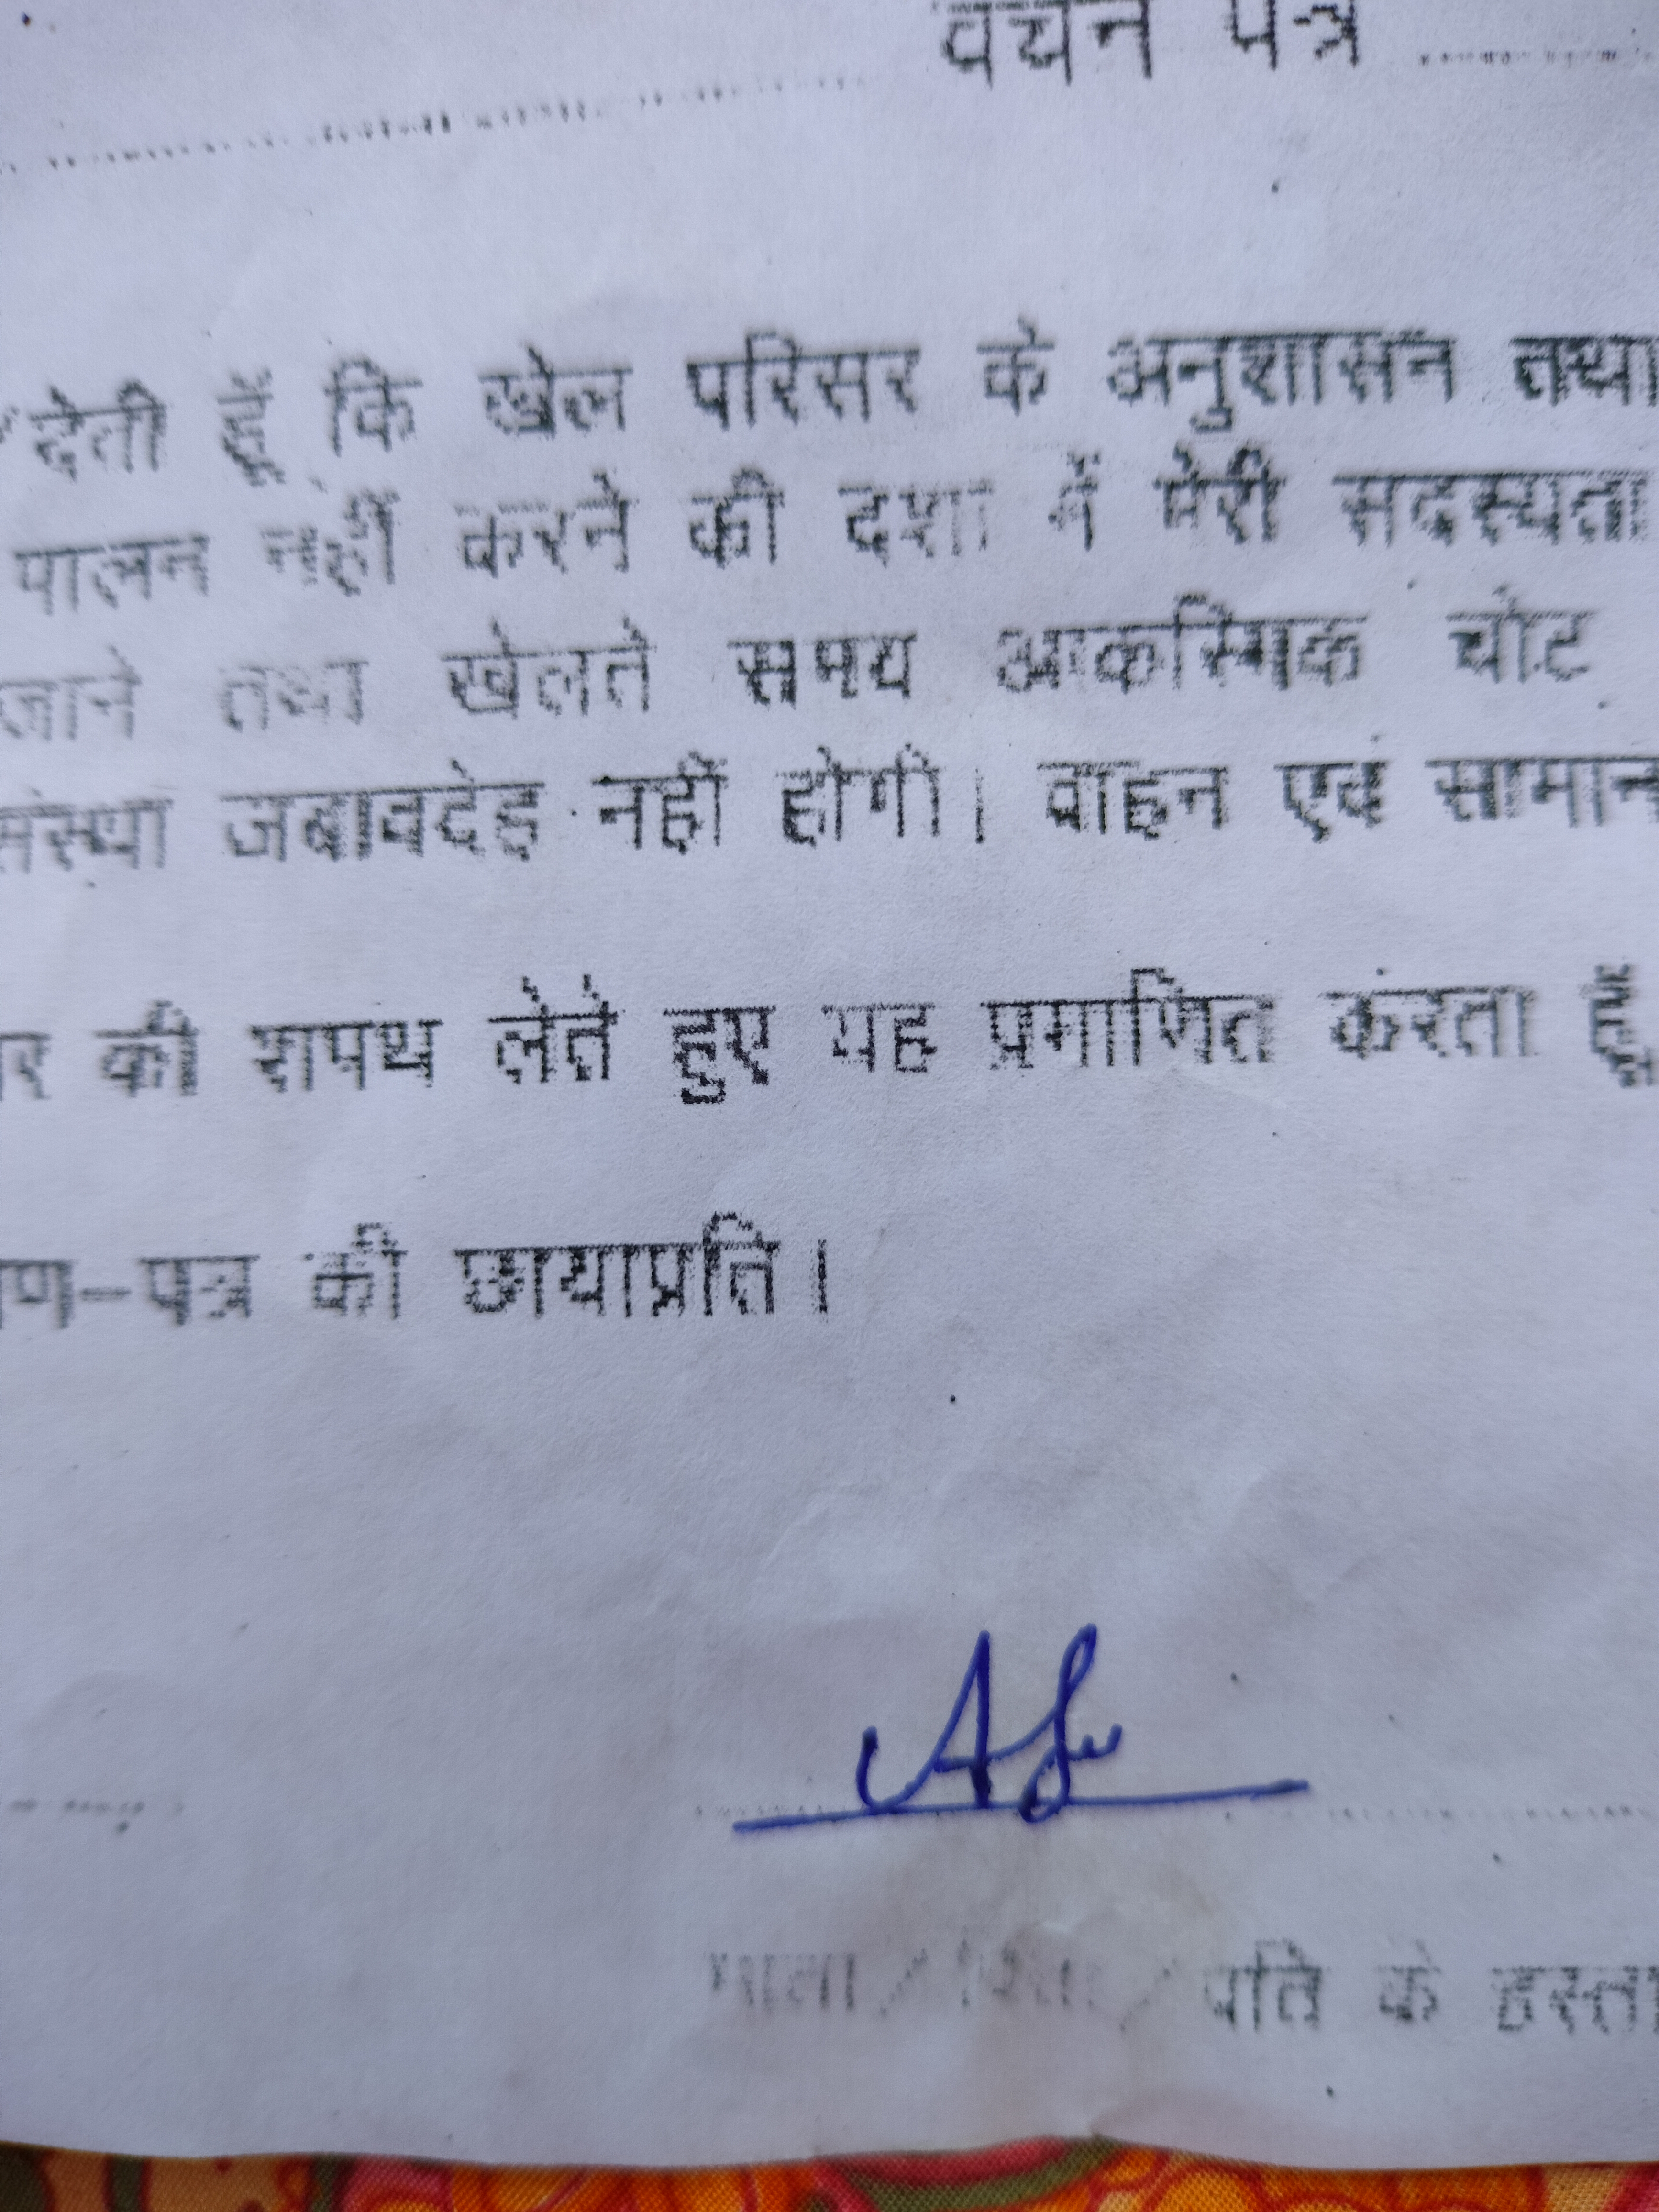 वचन पत्र
देती हूँ कि खेल परिसर के अनुशासन तथा
पालन नहीं करने की दशा में मेरी सदस्यता
जाने तथा खेलते समय आकस्मिक चोट
संस्था जबावदेह नहीं होगी। वाहन एवं सामान
की शपथ लेते हुए यह प्रमाणित करता हूँ
पत्र की छायाप्रति।
माता / पिता / पति के हस्ता